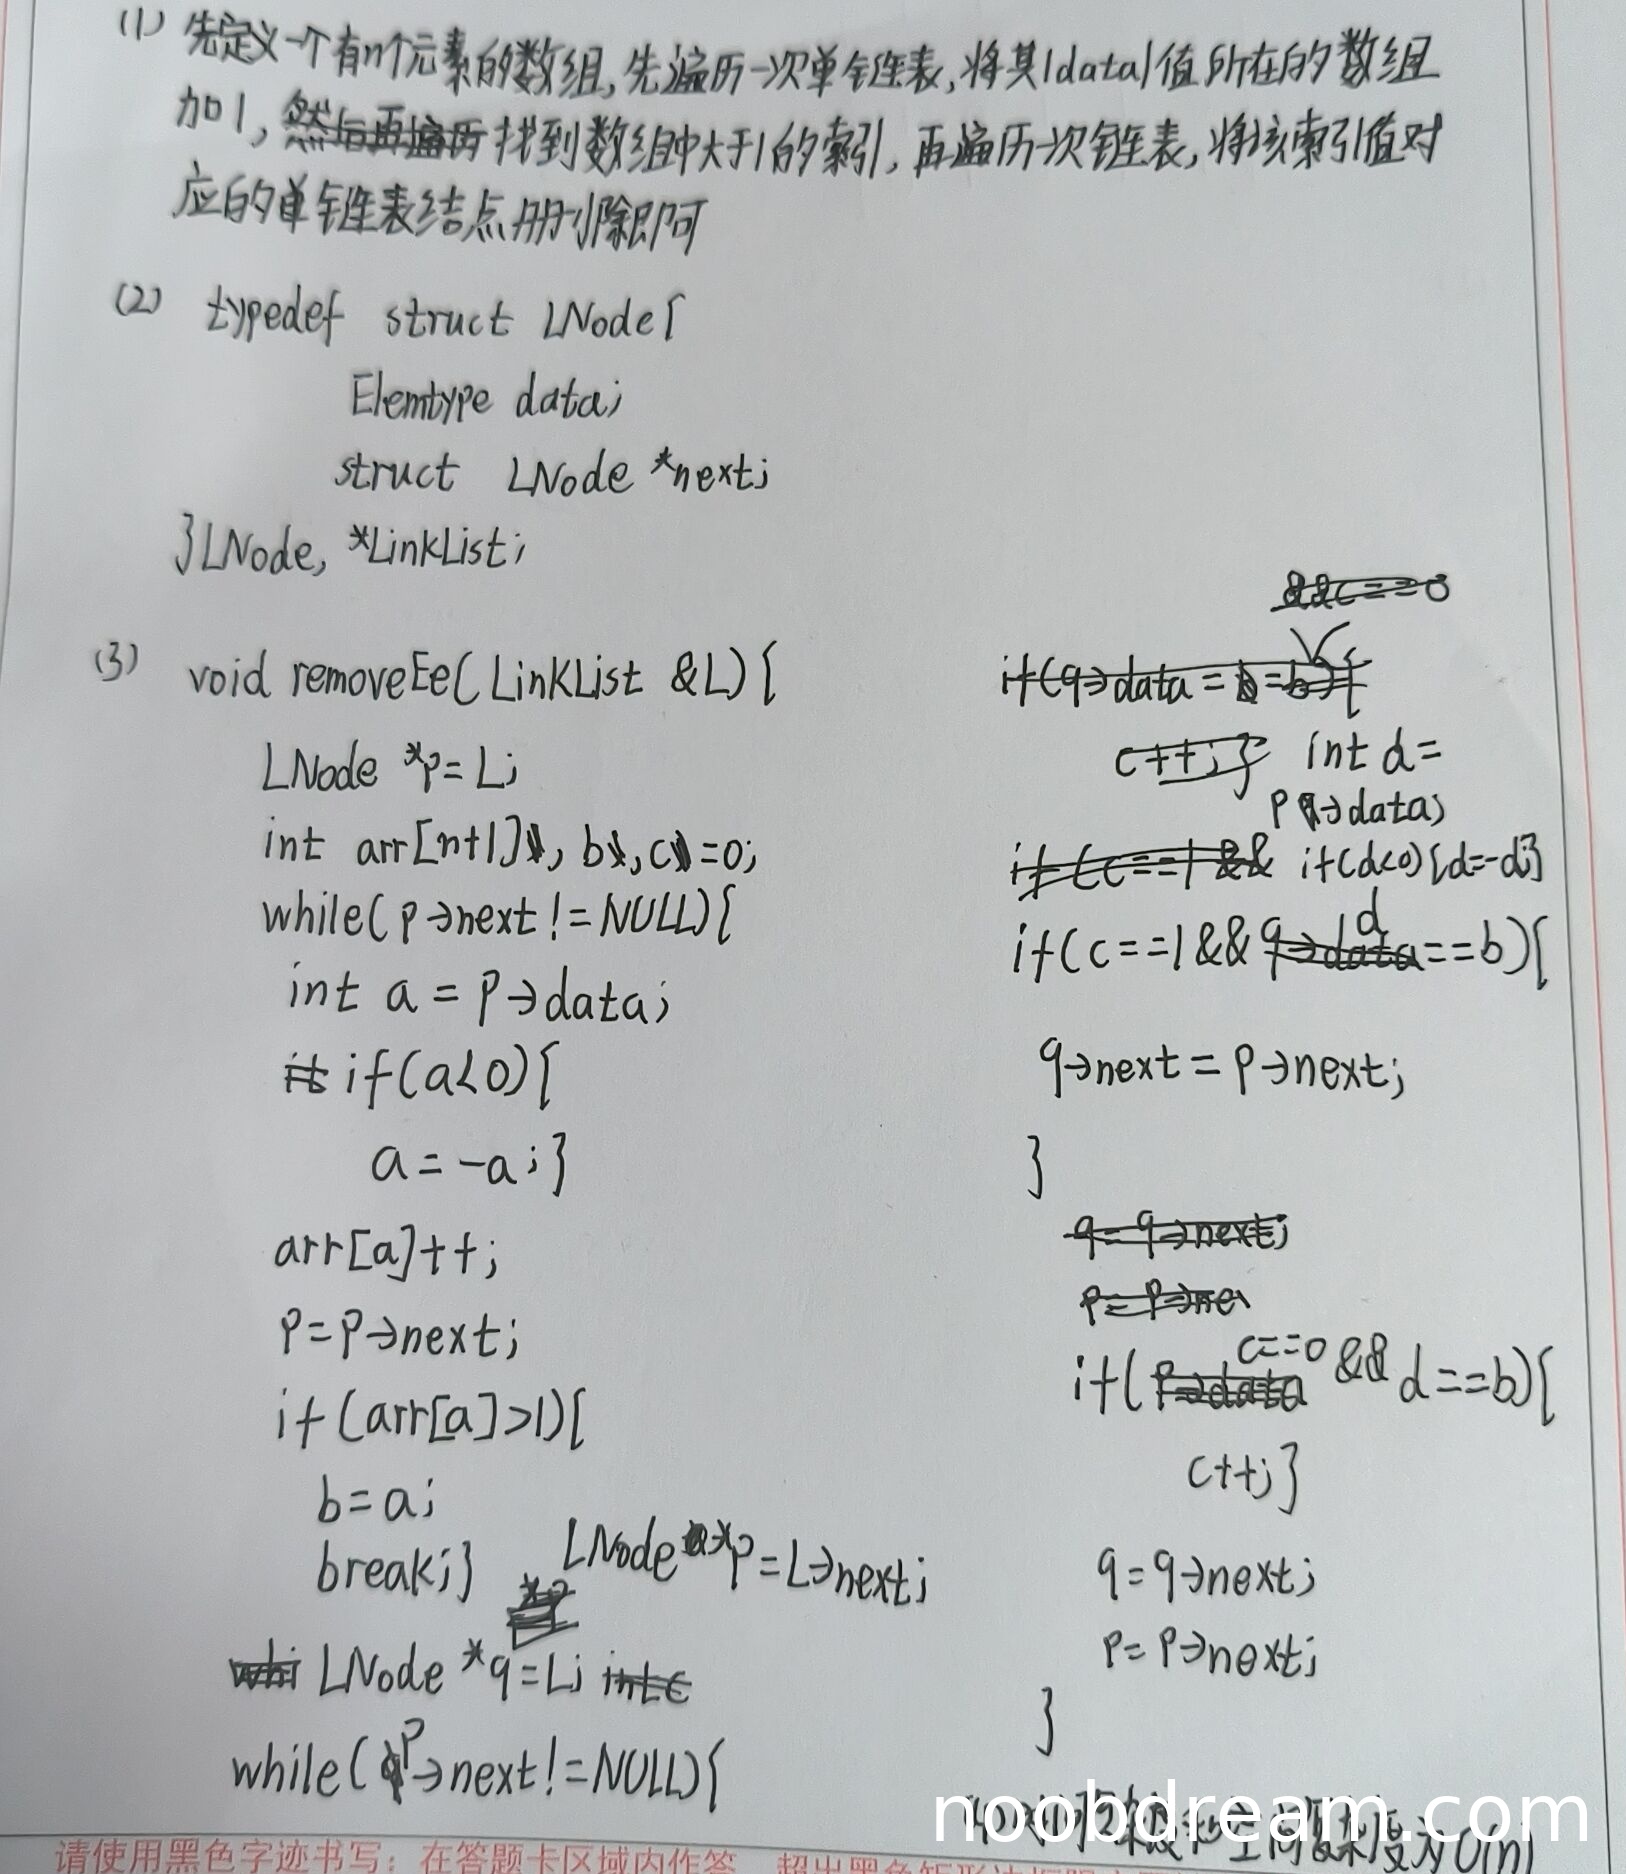 (1) 先定义一个有n个元素的数组,先遍历一次单链表,将其|data|值所在的数组
加1, 然后再遍历 找到数组中大于1的索引, 再遍历一次链表, 将该索引值对
应的单链表结点删除即可
(2) typedef struct LNode{
Elemtype data;
struct LNode *next;
}LNode, *LinkList;
(3) void removeEe(LinkList &L){
LNode *p=L;
int arr[n+1], b, c=0;
while(p->next!=NULL){
int a = p->data;
if(a<0){
a=-a;}
arr[a]++;
p=p->next;
if(arr[a]>1){
b=a;
break;}
LNode *p=L->next;
LNode *q=L; int c
while(p->next!=NULL){
&&c==0
if(q->data==b){
c++;} int d=
p->data;
if(c==1 && if(d<0){d=-d;}
d
if(c==1&&q->data==b){
q->next=p->next;
}
q=q->next;
p=p->ne
c==0
if(p->data && d==b){
c++;}
q=q->next;
p=p->next;
}
空间复杂度为O(n)
noobdream.com
请使用黑色字迹书写;在答题卡区域内作答